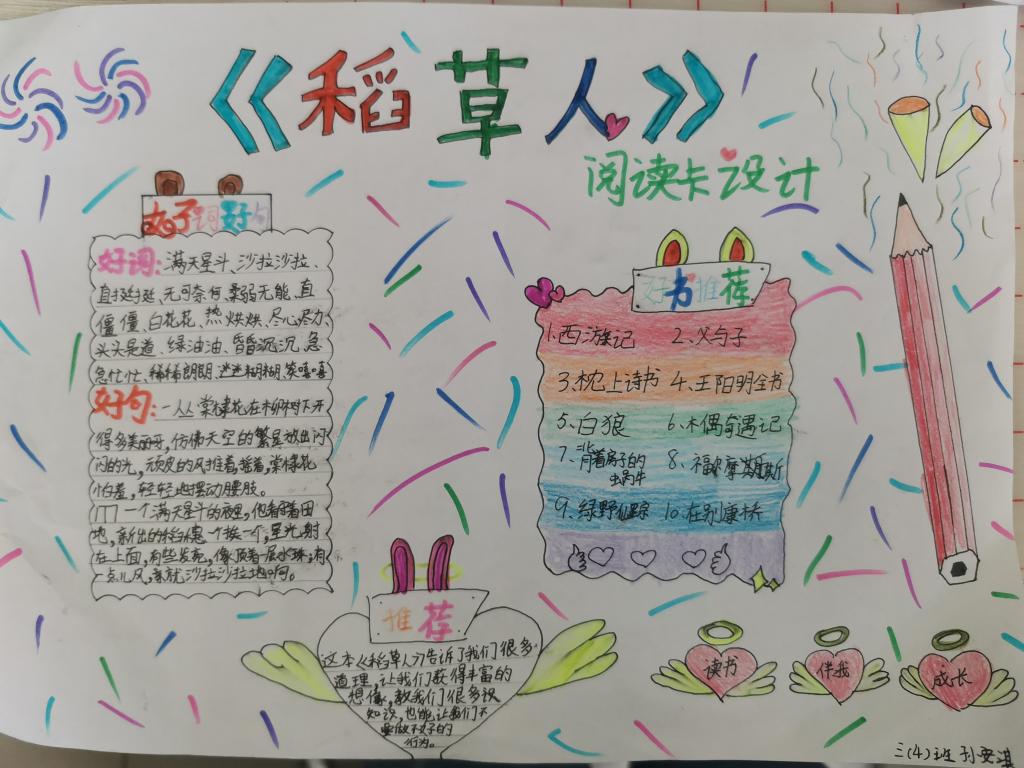 《稻草人》
阅读卡设计
好词好句
好词:满天星斗、沙拉沙拉、
直挺挺、无可奈何、柔弱无能、直
僵僵、白花花、热烘烘、尽心尽力
头头是道、绿油油、昏昏沉沉、急
急忙忙、稀稀朗朗、迷迷糊糊、笑嘻嘻
好句:一丛棠棣花在柳树下开
得多美丽呀,仿佛天空的繁星放出闪
闪的光,顽皮的风推着,摇着,棠棣花
怕羞,轻轻地摆动腰肢。
一个满天星斗的夜里,他看着田
地,新出的稻穗一个挨一个,星光射
在上面,有些发亮,像顶着一层水珠,有
一点儿风,就沙拉沙拉地响。
好书推荐
1.西游记 2.父与子
3.枕上诗书 4.王阳明全书
5.白狼 6.木偶奇遇记
7.背着房子的
蜗牛 8.福尔摩斯
9.绿野仙踪 10.在别康桥
推荐
这本《稻草人》告诉了我们很多
道理,让我们获得丰富的
想像,教我们很多识
知识,也能让我们不
要做不好的
行为。
读书
伴我
成长
三(4)班 孙